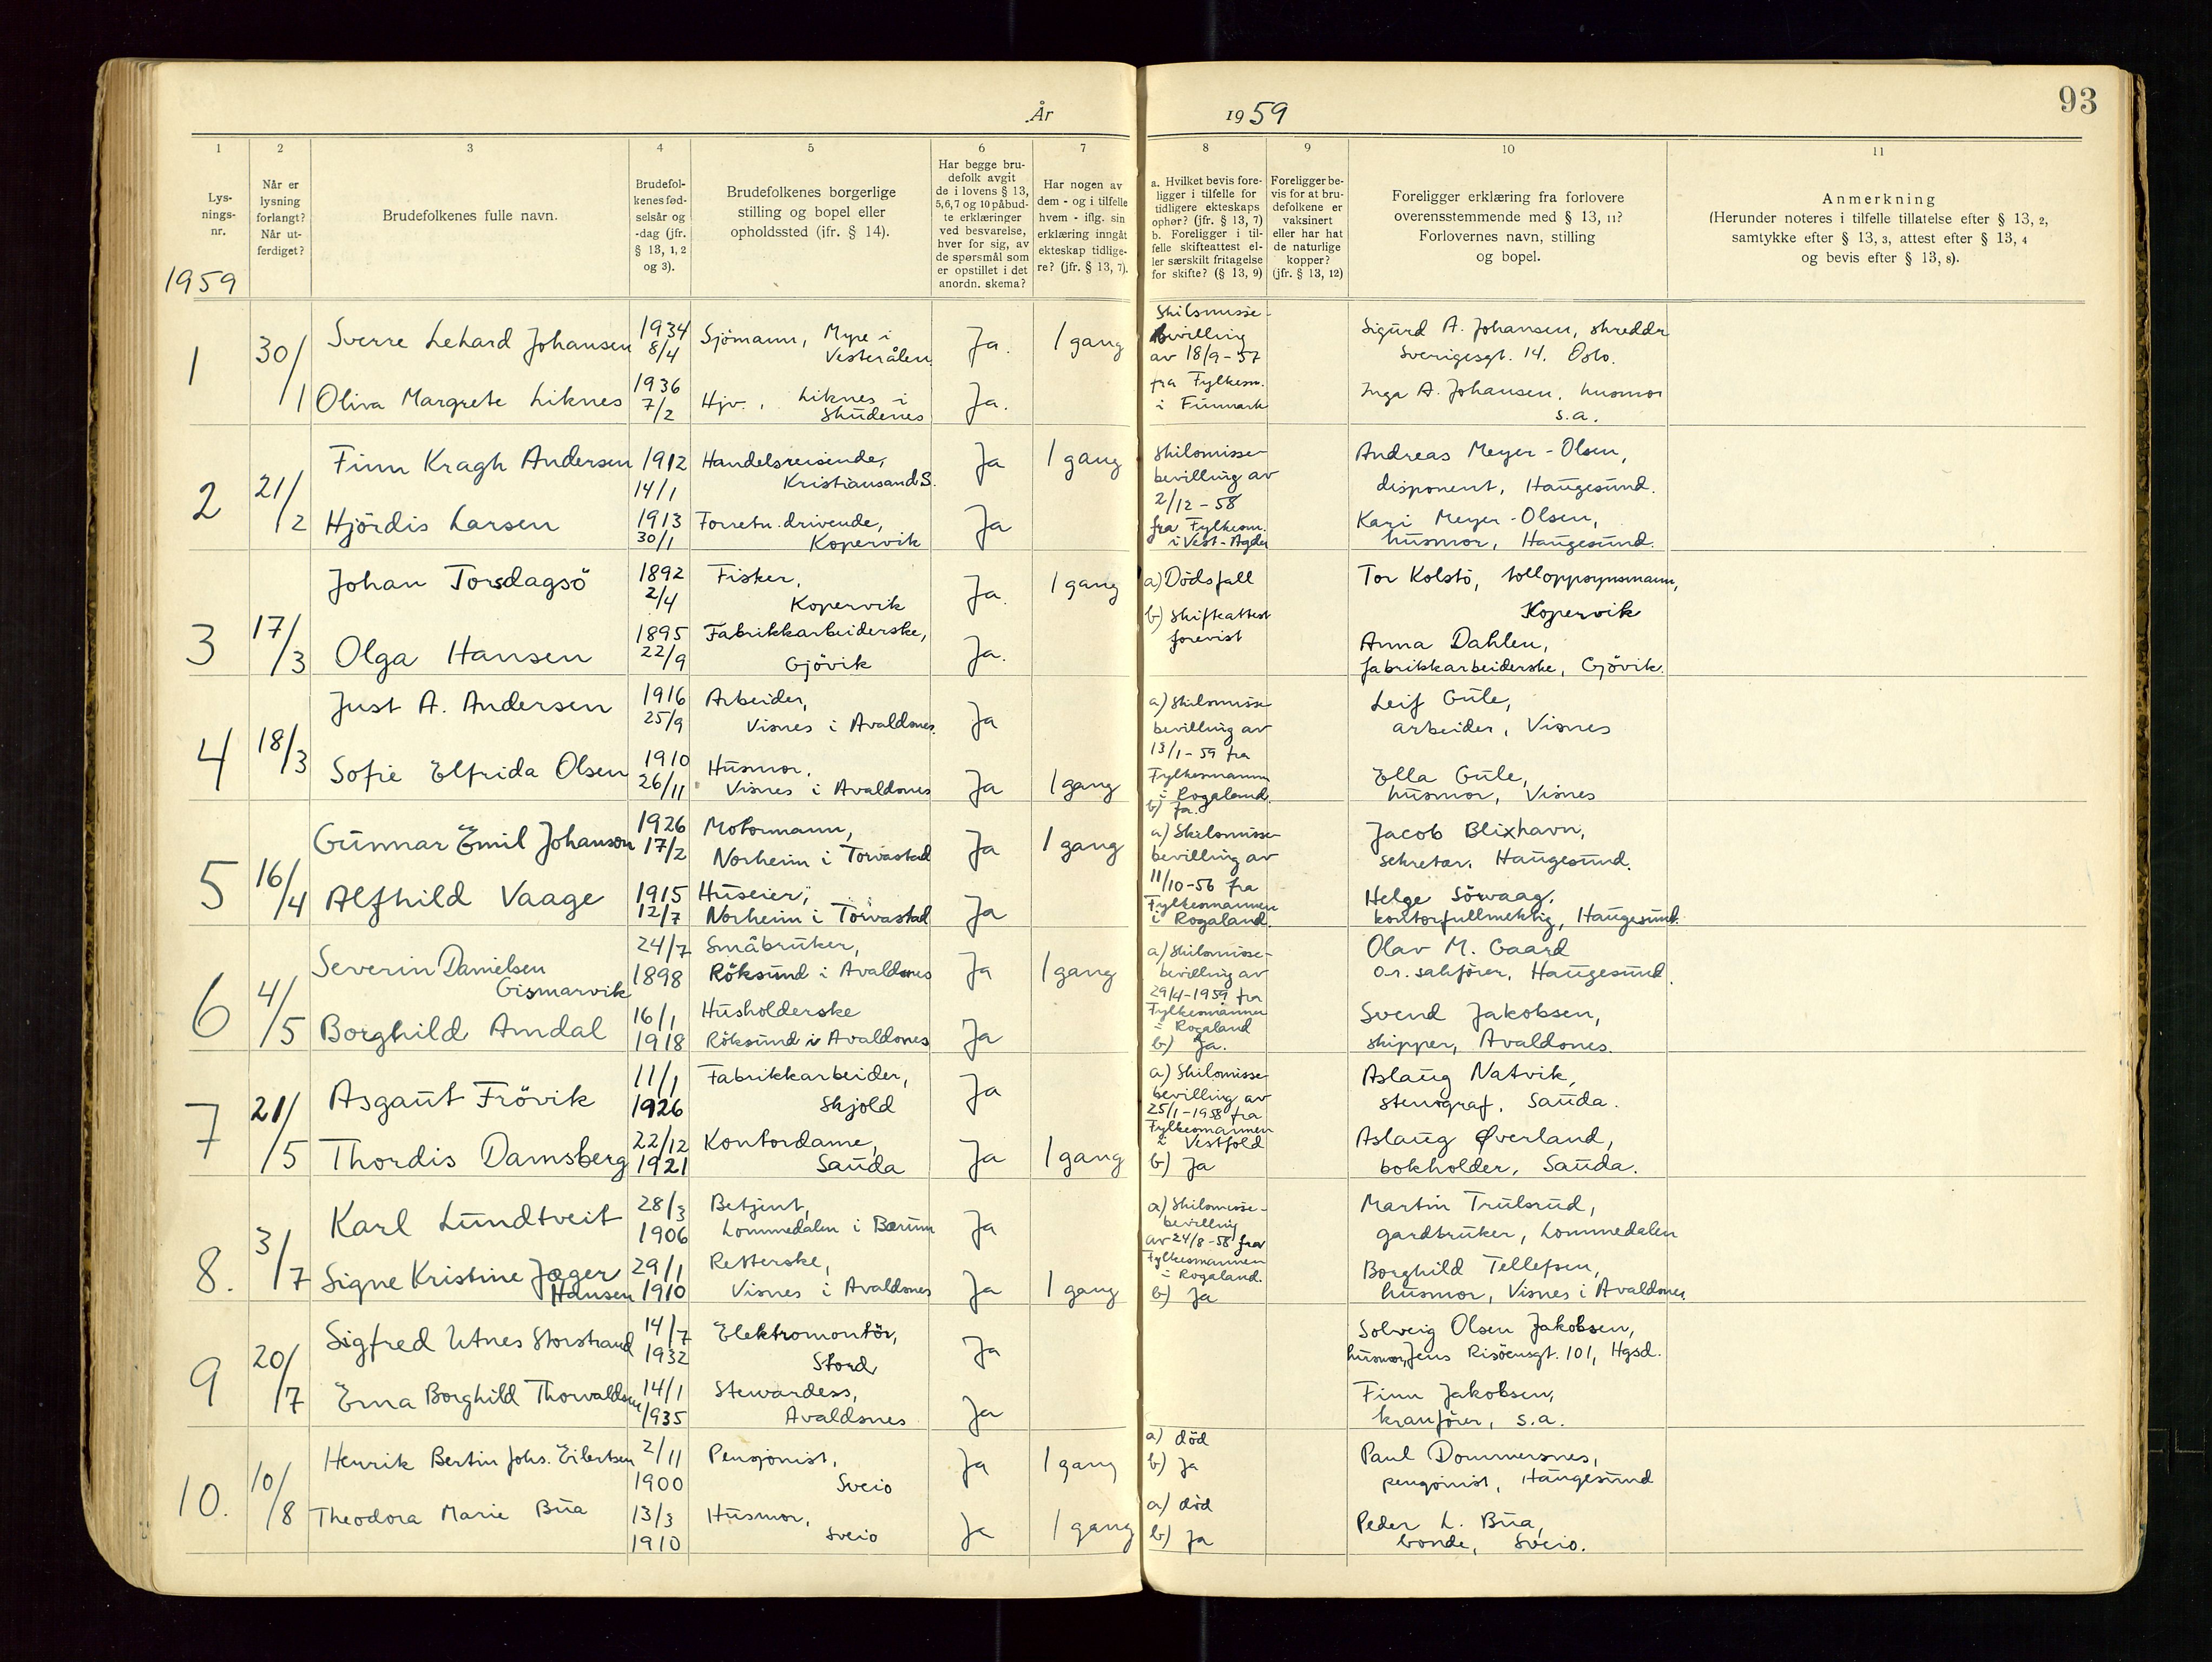 93
År 1959
1
Lys-
nings-
nr.
1959
2
Når er
lysning
forlangt?
Når ut-
ferdiget?
3
Brudefolkenes fulle navn.
4
Brudefol-
kenes fød-
selsår og
-dag (jfr.
§ 13, 1, 2
og 3).
5
Brudefolkenes borgerlige
stilling og bopel eller
opholdssted (ifr. § 14).
6
Har begge bru-
defolk avgit
de i lovens § 13,
5,6,7 og 10 påbud-
te erklæringer
ved besvarelse,
hver for sig, av
de spørsmål som
er opstillet i det
anordn. skema?
7
Har nogen av
dem - og i tilfelle
hvem - iflg. sin
erklæring inngåt
ekteskap tidlige-
re? (jfr. § 13, 7).
8
a. Hvilket bevis fore-
ligger i tilfelle for
tidligere ekteskaps
ophør? (jfr. § 13, 7)
b. Foreligger i til-
felle skifteattest el-
ler særskilt fritagelse
for skifte? (§ 13, 9)
9
Foreligger be-
vis for at bru-
defolkene er
vaksinert
eller har hat
de naturlige
kopper?
(jfr. § 13, 12)
10
Foreligger erklæring fra forlovere
overensstemmende med § 13, 11?
Forlovernes navn, stilling
og bopel.
11
Anmerkning
(Herunder noteres i tilfelle tillatelse efter § 13, 2,
samtykke efter § 13, 3, attest efter § 13, 4
og bevis efter § 13, 8).
1
30/1
Sverre Lehard Johansen
1934
8/4
Sjömann, Myre i
Vesterålen
Ja.
1 gang
Skilsmisse-
bevilling
av 18/9-57
fra Fylkesm.
i Finnmark
Sigurd A. Johansen, skreddr
Sverigesgt. 14. Oslo.
Oliva Margrete Liknes
1936
7/2
Hjv., Liknes i
Skudenes
Ja.
Inga A. Johansen, husmor
s.a.
2
21/2
Finn Kragh Andersen
1912
14/1
Handelsreisende,
Kristiansand S.
Ja
1 gang
Skilsmisse-
bevilling av
2/12-58
fra Fylkesm.
i Vest-Agder
Andreas Meyer-Olsen,
disponent, Haugesund.
Hjördis Larsen
1913
30/1
Forretn.drivende,
Kopervik
Ja
Kari Meyer-Olsen,
husmor, Haugesund.
3
17/3
Johan Torsdagsö
1892
2/4
Fisker,
Kopervik
Ja.
1 gang
a) Dödsfall
b) Skifteattest
forevist
Tor Kolstö, tolloppsynsmann,
Kopervik
Olga Hansen
1895
22/9
Fabrikkarbeiderske,
Gjövik
Ja.
Anna Dahlen,
fabrikkarbeiderske, Gjövik.
4
18/3
Just A. Andersen
1916
25/9
Arbeider,
Visnes i Avaldsnes.
Ja
a) Skilsmisse
bevilling av
13/1-59 fra
Fylkesmann
i Rogaland.
b) Ja.
Leif Gule,
arbeider, Visnes
Sofie Elfrida Olsen
1910
26/11
Husmor,
Visnes i Avaldsnes
Ja
1 gang
Ella Gule,
husmor, Visnes
5
16/4
Gunnar Emil Johanson
1926
17/2
Motormann,
Norheim i Torvastad
Ja
1 gang
a) Skilsmisse-
bevilling av
11/10-56 fra
Fylkesmannen
i Rogaland.
Jacob Blixhavn,
sekretær. Haugesund.
Alfhild Vaage
1915
12/7
Huseier,
Norheim i Torvastad
Ja
Helge Sörvaag,
kontorfullmektig, Haugesund.
6
4/5
Severin Danielsen
Gismarvik
24/7
1898
Småbruker,
Röksund i Avaldsnes
Ja
1 gang
a) Skilsmisse-
bevilling av
29/4-1959 fra
Fylkesmannen
i Rogaland
b) Ja.
Olav M. Gaard
o.r. sakförer, Haugesund.
Borghild Amdal
16/1
1918
Husholderske
Röksund i Avaldsnes
Ja
Svend Jakobsen,
skipper, Avaldsnes.
7
21/5
Asgaut Frövik
11/1
1926
Fabrikkarbeider,
Skjold
Ja
a) Skilsmisse-
bevilling av
25/1-1958 fra
Fylkesmannen
i Vestfold
b) Ja
Aslaug Natvik,
stenograf, Sauda.
Thordis Damsberg
22/12
1921
Kontordame,
Sauda
Ja
1 gang
Aslaug Øverland,
bokholder, Sauda.
8.
3/7
Karl Lundtveit
28/3
1906
Betjent,
Lommedalen i Bærum
Ja
a) Skilsmisse-
bevilling
av 24/8-58 fra
Fylkesmannen
i Rogaland.
b) Ja
Martin Trulsrud,
gardbruker, Lommedalen
Signe Kristine Jæger
Hansen
29/1
1910
Retterske,
Visnes i Avaldsnes
Ja
1 gang
Borghild Tellefsen,
husmor, Visnes i Avaldsnes
9
20/7
Sigfred Utnes Storstrand
14/7
1932
Elektromontör,
Stord
Ja
Solveig Olsen Jakobsen,
husmor, Jens Risöensgt. 101, Hgsd.
Erna Borghild Thorvaldsen
14/1
1935
Stewardess,
Avaldsnes
Ja
Finn Jakobsen,
kranförer, s.a.
10.
10/8
Henrik Bertin Johs. Eilertsen
2/11
1900
Pensjonist,
Sveio
Ja
1 gang
a) död
b) Ja
Paul Dommersnes,
pensjonist, Haugesund
Theodora Marie Bua
13/3
1910
Husmor,
Sveio
Ja
1 gang
a) död
b) Ja
Peder L. Bua,
bonde, Sveio.